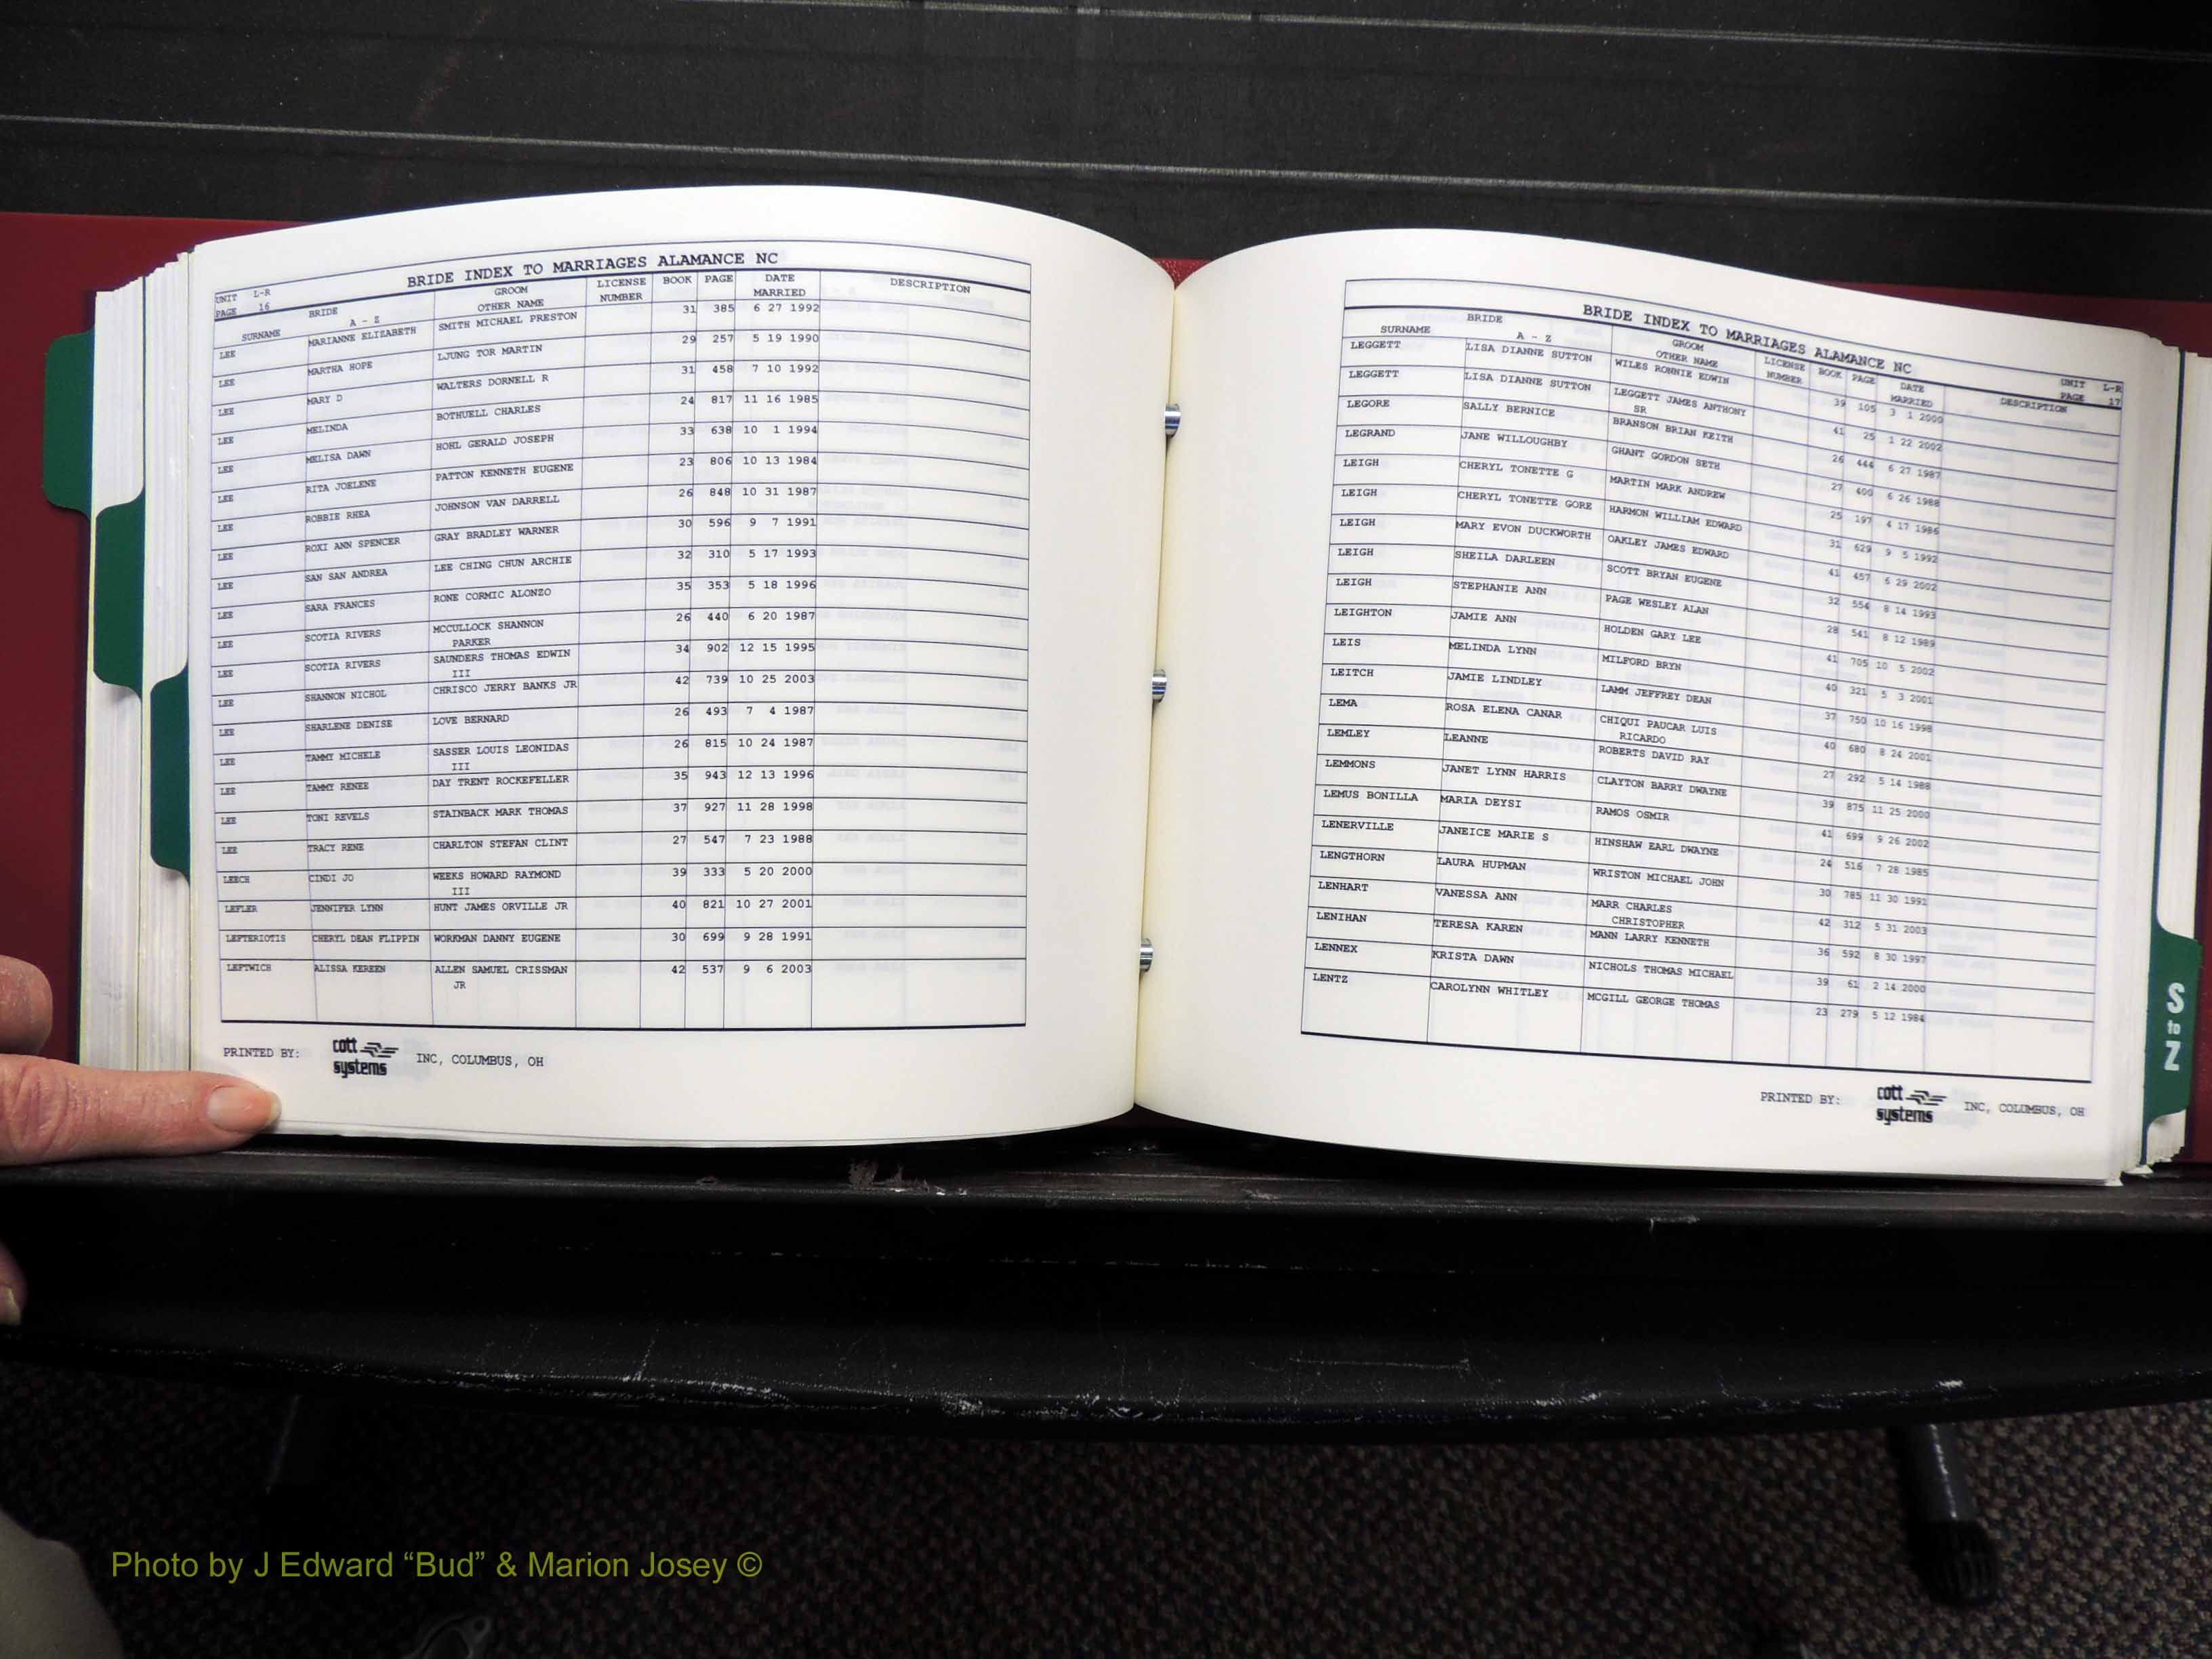 BRIDE INDEX TO MARRIAGES ALAMANCE NC
UNIT L-R
PAGE 16
SURNAME BRIDE A - Z GROOM OTHER NAME LICENSE NUMBER BOOK PAGE DATE MARRIED DESCRIPTION
LEE MARIANNE ELIZABETH SMITH MICHAEL PRESTON 31 385 6 27 1992
LEE MARTHA HOPE LJUNG TOR MARTIN 29 257 5 19 1990
LEE MARY D WALTERS DORNELL R 31 458 7 10 1992
LEE MELINDA BOTHUELL CHARLES 24 817 11 16 1985
LEE MELISA DAWN HOHL GERALD JOSEPH 33 638 10 1 1994
LEE RITA JOELENE PATTON KENNETH EUGENE 23 806 10 13 1984
LEE ROBBIE RHEA JOHNSON VAN DARRELL 26 848 10 31 1987
LEE ROXI ANN SPENCER GRAY BRADLEY WARNER 30 596 9 7 1991
LEE SAN SAN ANDREA LEE CHING CHUN ARCHIE 32 310 5 17 1993
LEE SARA FRANCES RONE CORMIC ALONZO 35 353 5 18 1996
LEE SCOTIA RIVERS MCCULLOCK SHANNON 26 440 6 20 1987
PARKER
LEE SCOTIA RIVERS SAUNDERS THOMAS EDWIN 34 902 12 15 1995
III
LEE SHANNON NICHOL CHRISCO JERRY BANKS JR 42 739 10 25 2003
LEE SHARLENE DENISE LOVE BERNARD 26 493 7 4 1987
LEE TAMMY MICHELE SASSER LOUIS LEONIDAS 26 815 10 24 1987
III
LEE TAMMY RENEE DAY TRENT ROCKEFELLER 35 943 12 13 1996
LEE TONI REVELS STAINBACK MARK THOMAS 37 927 11 28 1998
LEE TRACY RENE CHARLTON STEFAN CLINT 27 547 7 23 1988
LEECH CINDI JO WEEKS HOWARD RAYMOND 39 333 5 20 2000
III
LEFLER JENNIFER LYNN HUNT JAMES ORVILLE JR 40 821 10 27 2001
LEFTERIOTIS CHERYL DEAN FLIPPIN WORKMAN DANNY EUGENE 30 699 9 28 1991
LEFTWICH ALISSA KEREEN ALLEN SAMUEL CRISSMAN 42 537 9 6 2003
JR
PRINTED BY: cott systems INC, COLUMBUS, OH
BRIDE INDEX TO MARRIAGES ALAMANCE NC
UNIT L-R
PAGE 17
SURNAME BRIDE A - Z GROOM OTHER NAME LICENSE NUMBER BOOK PAGE DATE MARRIED DESCRIPTION
LEGGETT LISA DIANNE SUTTON WILES RONNIE EDWIN 39 105 3 1 2000
LEGGETT LISA DIANNE SUTTON LEGGETT JAMES ANTHONY 41 25 1 22 2002
SR
LEGORE SALLY BERNICE BRANSON BRIAN KEITH 26 444 6 27 1987
LEGRAND JANE WILLOUGHBY GHANT GORDON SETH 27 400 6 26 1988
LEIGH CHERYL TONETTE G MARTIN MARK ANDREW 25 197 4 17 1986
LEIGH CHERYL TONETTE GORE HARMON WILLIAM EDWARD 31 629 9 5 1992
LEIGH MARY EVON DUCKWORTH OAKLEY JAMES EDWARD 41 457 6 29 2002
LEIGH SHEILA DARLEEN SCOTT BRYAN EUGENE 32 554 8 14 1993
LEIGH STEPHANIE ANN PAGE WESLEY ALAN 28 541 8 12 1989
LEIGHTON JAMIE ANN HOLDEN GARY LEE 41 705 10 5 2002
LEIS MELINDA LYNN MILFORD BRYN 40 321 5 3 2001
LEITCH JAMIE LINDLEY LAMM JEFFREY DEAN 37 750 10 16 1998
LEMA ROSA ELENA CANAR CHIQUI PAUCAR LUIS 40 680 8 24 2001
RICARDO
LEMLEY LEANNE ROBERTS DAVID RAY 27 292 5 14 1988
LEMMONS JANET LYNN HARRIS CLAYTON BARRY DWAYNE 39 875 11 25 2000
LEMUS BONILLA MARIA DEYSI RAMOS OSMIR 41 699 9 26 2002
LENERVILLE JANEICE MARIE S HINSHAW EARL DWAYNE 24 516 7 28 1985
LENGTHORN LAURA HUPMAN WRISTON MICHAEL JOHN 30 785 11 30 1991
LENHART VANESSA ANN MARR CHARLES 42 312 5 31 2003
CHRISTOPHER
LENIHAN TERESA KAREN MANN LARRY KENNETH 36 592 8 30 1997
LENNEX KRISTA DAWN NICHOLS THOMAS MICHAEL 39 61 2 14 2000
LENTZ CAROLYNN WHITLEY MCGILL GEORGE THOMAS 23 279 5 12 1984
PRINTED BY: cott systems INC, COLUMBUS, OH
S to Z
Photo by J Edward “Bud” & Marion Josey ©